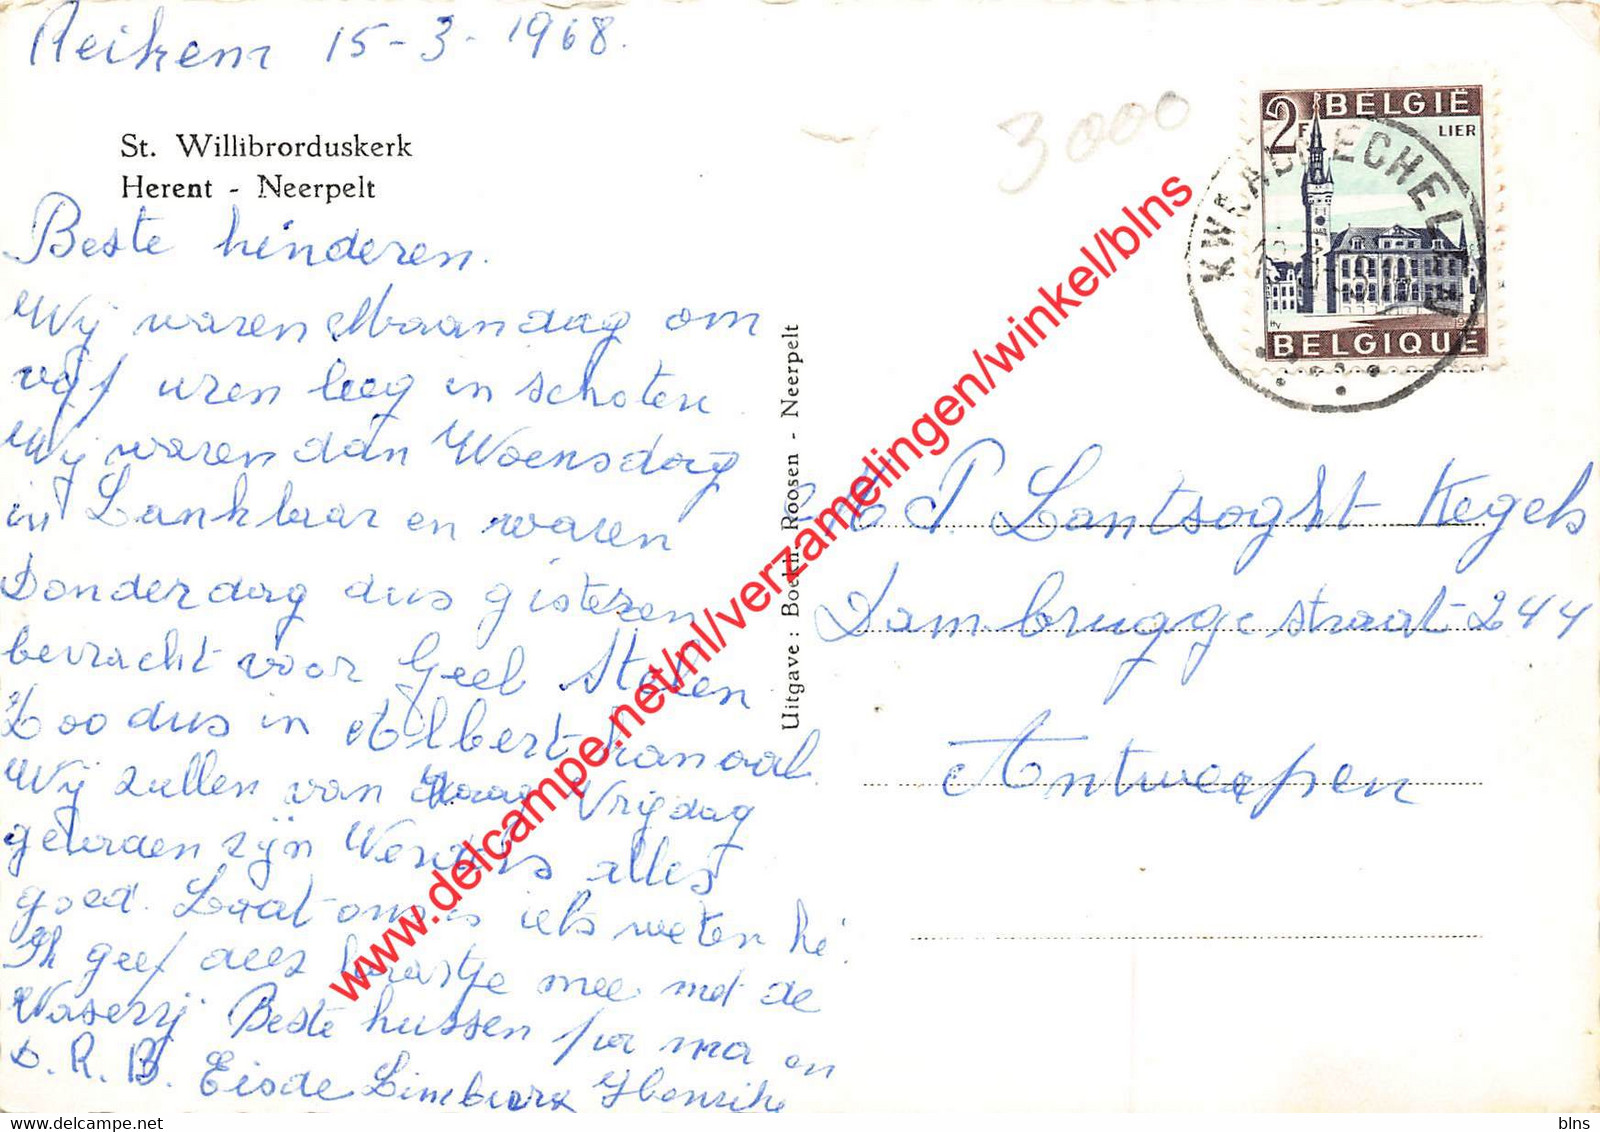 Reikem 15-3-1968.
St. Willibrorduskerk
Herent - Neerpelt
Beste kinderen.
Wij waren Maandag om
vijf uren leeg in schoten
Wij waren dan Woensdag
in Lanklaar en waren
Donderdag dus gisteren
bevracht voor Geel Stelen
Zoo dus in Albert kanaal
Wij zullen van Vrijdag
geladen zijn Wensch alles
goed. Laat ons iets weten hé
Ik geef deez kaartje mee met de
Waserij Beste kussen pa ma en
D. R. B. Eisde Limburg Henrike
Uitgave: Boekh. Roosen - Neerpelt
3000
2F BELGIË
LIER
BELGIQUE
KWRADMECHELEN
P. Lantsoght Kegels
Dambruggestraat 244
Antwerpen
www.delcampe.net/nl/verzamelingen/winkel/blns
blns